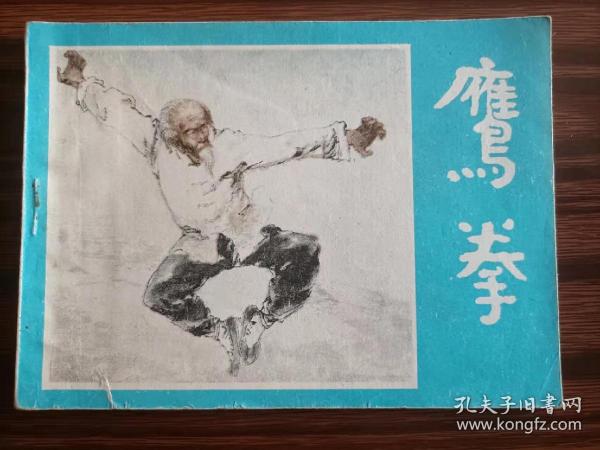 鹰拳
孔夫子旧書网
www.kongfz.com